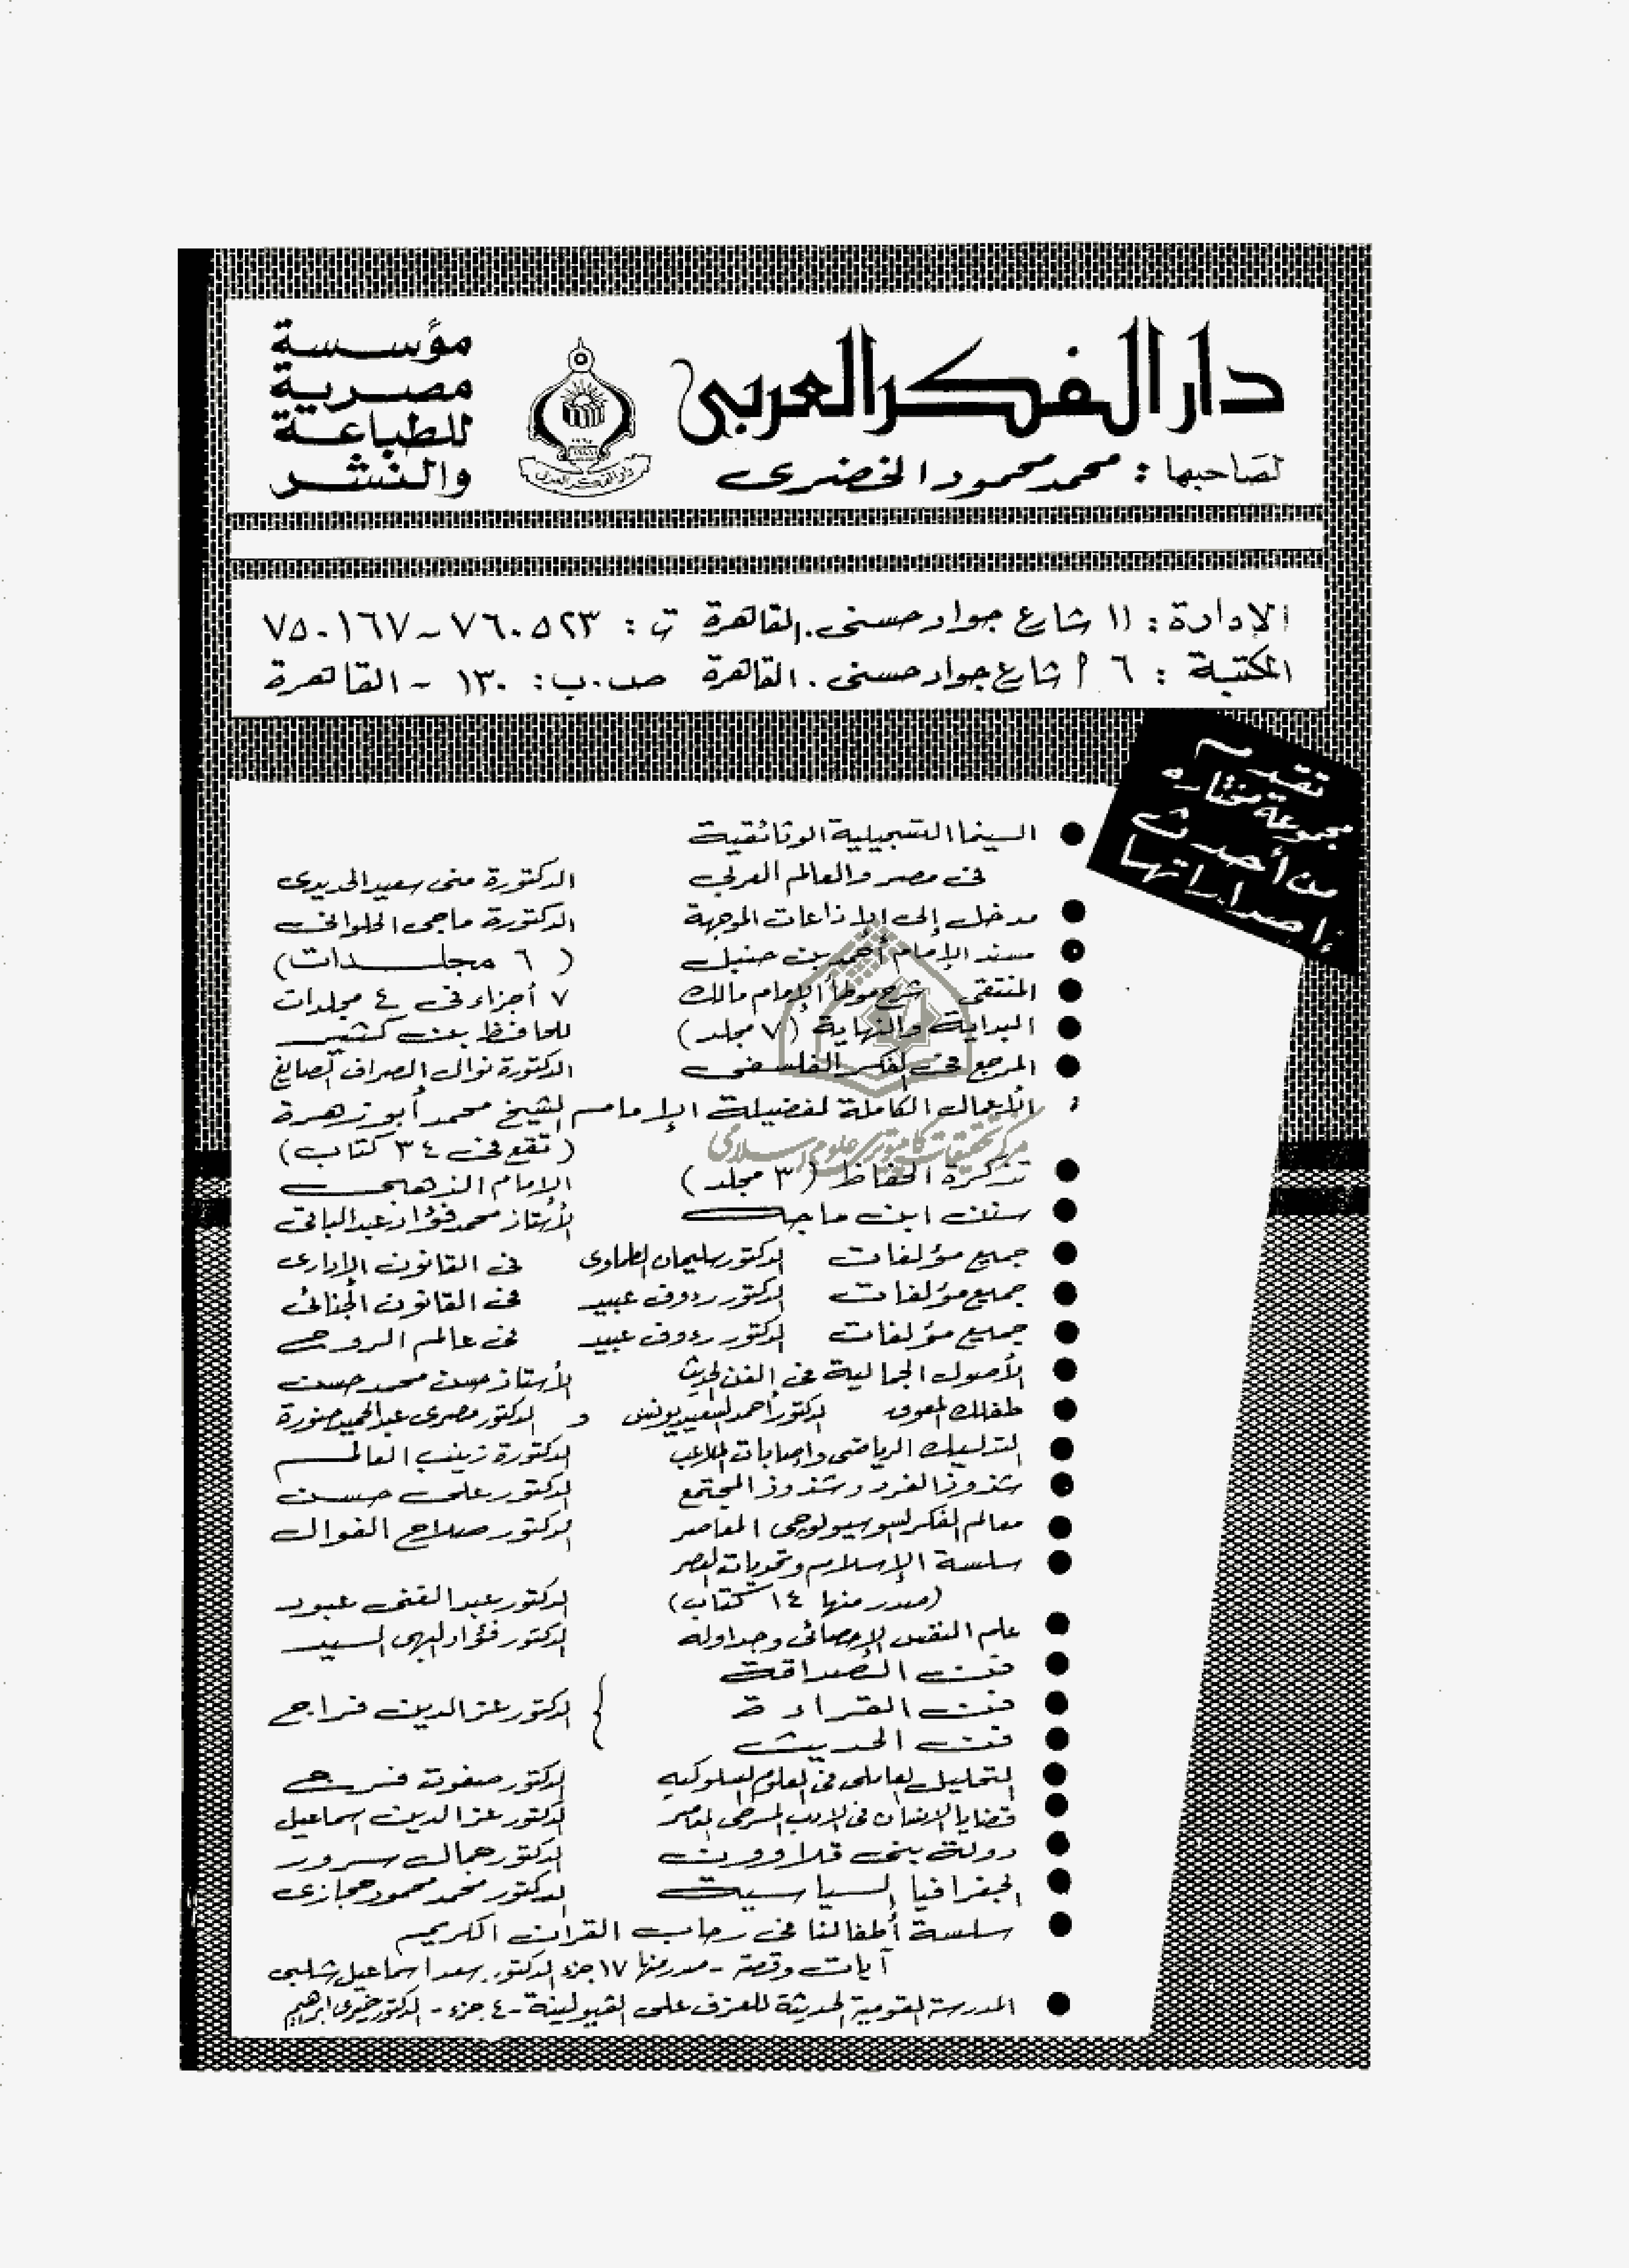 دار الفكر العربى
لصاحبها : محمد محمود الخضرى
دار الفكر العربى
مؤسسة
مصرية
للطباعة
والنشر
الإدارة : ١١ شارع جواد حسنى . القاهرة ت : ٧٦٠٥٢٣ - ٧٥٠١٦٧
المكتبة : ٦ أ شارع جواد حسنى . القاهرة ص . ب : ١٣٠ - القاهرة
تقدم
مجموعة مختاره
من أحدث
إصداراتها
● السينما التسجيلية الوثائقية
فى مصر والعالم العربى الدكتورة منى سعيد الحديدى
● مدخل إلى الإذاعات الموجهة الدكتورة ماجى الحلوانى
● مسند الإمام أحمد بن حنبل ( ٦ مجلدات )
● المنتقى شرح موطأ الإمام مالك ٧ أجزاء فى ٤ مجلدات
● البداية والنهاية ( ٧ مجلد ) للحافظ بن كثير
● المرجع فى الفكر الفلسفى الدكتورة نوال الصراف الصايغ
الأعمال الكاملة لفضيلة الإمام الشيخ محمد أبو زهرة
( تقع فى ٣٤ كتاب )
مركز تحقيقات كامپيوترى علوم اسلامى
● تذكرة الحفاظ ( ٣ مجلد ) الإمام الذهبى
● سنن ابن ماجه الأستاذ محمد فؤاد عبد الباقى
● جميع مؤلفات الدكتور سليمان الطماوى فى القانون الإدارى
● جميع مؤلفات الدكتور رءوف عبيد فى القانون الجنائى
● جميع مؤلفات الدكتور رءوف عبيد فى عالم الروح
● الأصول الجمالية فى الفن الحديث الأستاذ حسن محمد حسن
● طفلك المعوق الدكتور أحمد السعيد يونس و الدكتور مصرى عبد الحميد حنورة
● التدليك الرياضى وإصابات الملاعب الدكتورة زينب العالم
● شذوذ الفرد وشذوذ المجتمع الدكتور على حسن
● معالم الفكر السوسيولوجى المعاصر الدكتور صلاح الفوال
● سلسة الإسلام وتحديات العصر
( صدر منها ١٤ كتاب ) الدكتور عبد الغنى عبود
● علم النفس الإحصائى وجداوله الدكتور فؤاد البهى السيد
● فن الصداقة
● فن القراءة } الدكتور عز الدين فراج
● فن الحديث
● التحليل العاملى فى العلوم السلوكيه الدكتور صفوت فرج
● قضايا الإنسان فى الادب المسرحى المعاصر الدكتور عز الدين اسماعيل
● دولة بنى قلاوون الدكتور جمال سرور
● الجغرافيا السياسية الدكتور محمد محمود حجازى
● سلسة أطفالنا فى رحاب القران الكريم
آيات وقصة - صدر منها ١٧ جزء الدكتور سعد اسماعيل شلبى
● المدرسة القومية الحديثة للعزف على الفيولينة - ٤ جزء - الدكتور خيرى ابراهيم